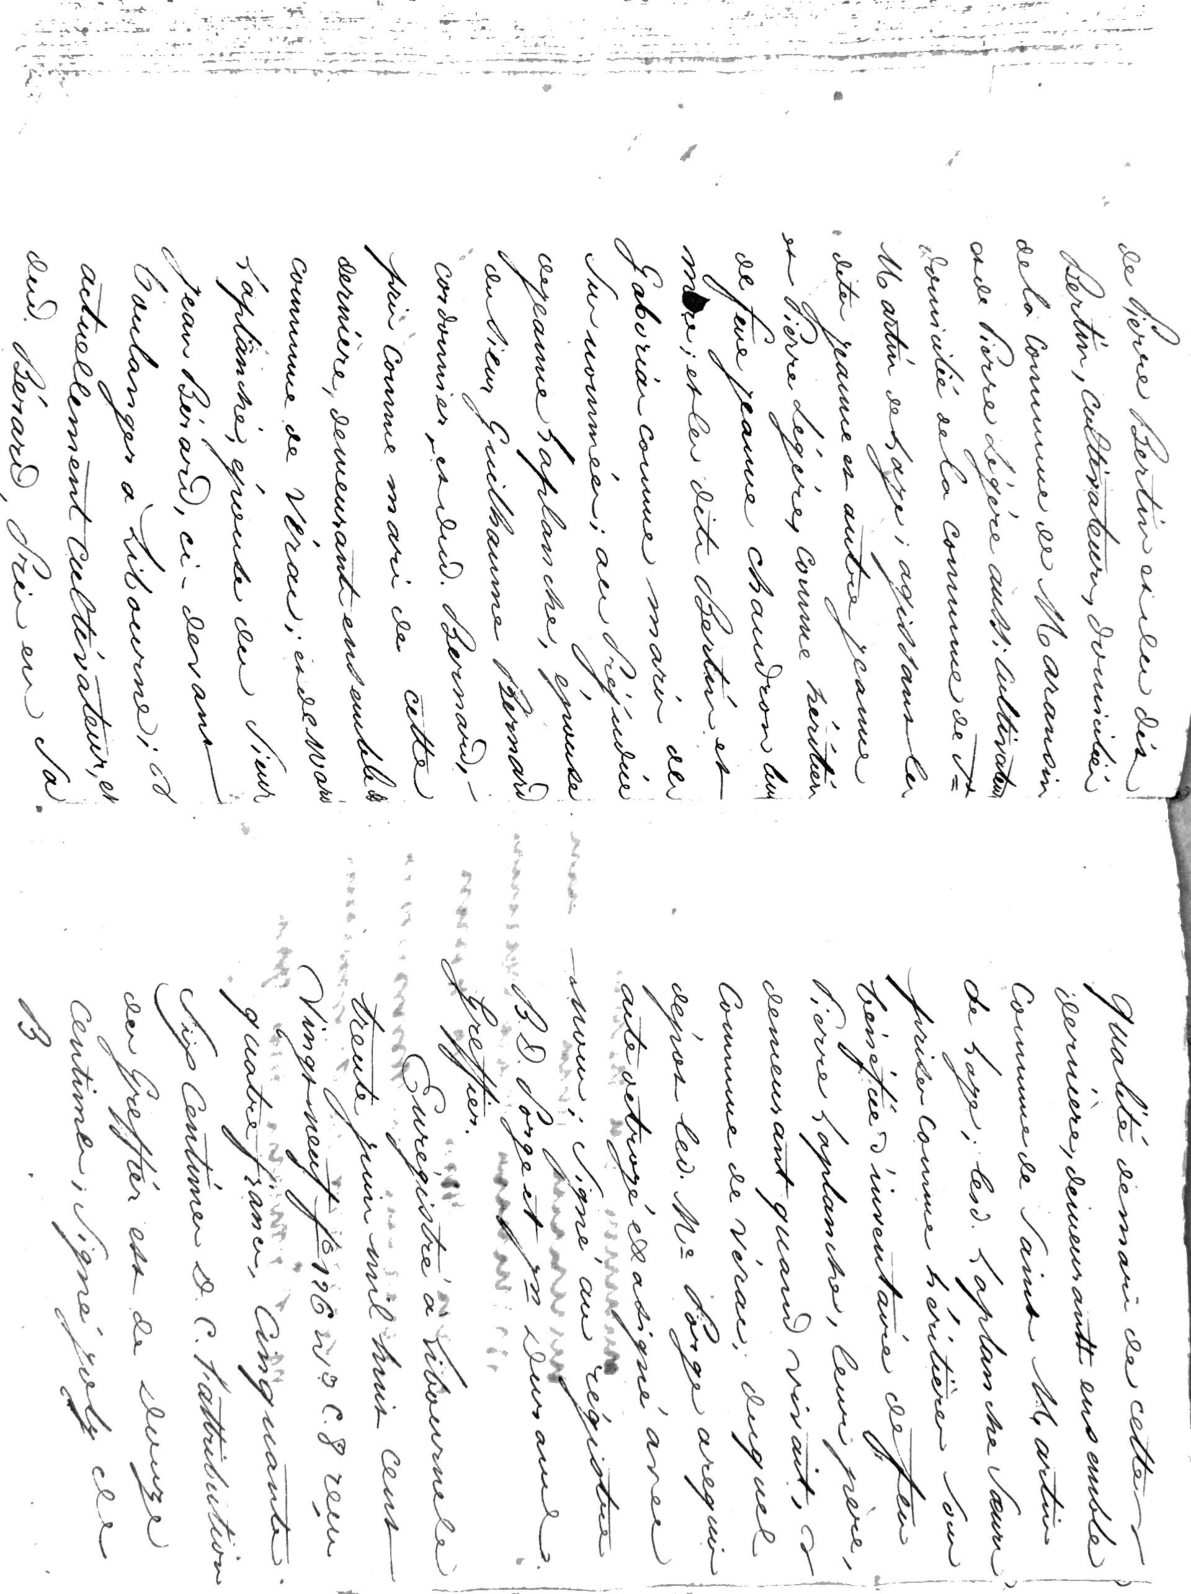 de Pierre Bertin et leu dis
Bertin, cultivateur, domicilié
de la commune de Maransin
et de Pierre Légère aussi cultivateur
domicilié de la commune de St
Martin de Laye; agissant les
dits jeanne et autre jeanne
et Pierre Légère, comme héritiers
de feue jeanne Chaudron leur
mère; et les dits Bertin et
Gaboriau comme maris des
sus nommées; au préjudice
de jeanne Laplanche, épouse
du sieur Guilhaume Bernard
cordonnier, et dud. Bernard,
pris comme mari de cette
dernière, demeurant ensemble
commune de Vérac; et de Marie
Laplanche, épouse du Sieur
jean Bérard, ci-devant
Boulanger à Libourne, et
actuellement cultivateur, et
dud. Bérard, Pris en sa
qualité de mari de cette
dernière, demeurants ensemble
commune de Saint Martin
de Laye; lesd. Laplanche Sœurs
prises comme héritières sous
bénéfice d'inventaire de feu
Pierre Laplanche, leur père,
demeurant quand vivait,
commune de Vérac; duquel
dépôt led. Me Porge a requis
acte octroyé et a signé avec
nous; signé au régistre
B. D. Porge et Durand
Greffier.
Enregistré à Libourne le
trente juin mil huit cent
vingt-neuf fo 196 vo c. 8 reçu
quatre francs, cinquante
Six centimes D. C. l'attribution
du Greffier est de douze
centimes; signé joly
B